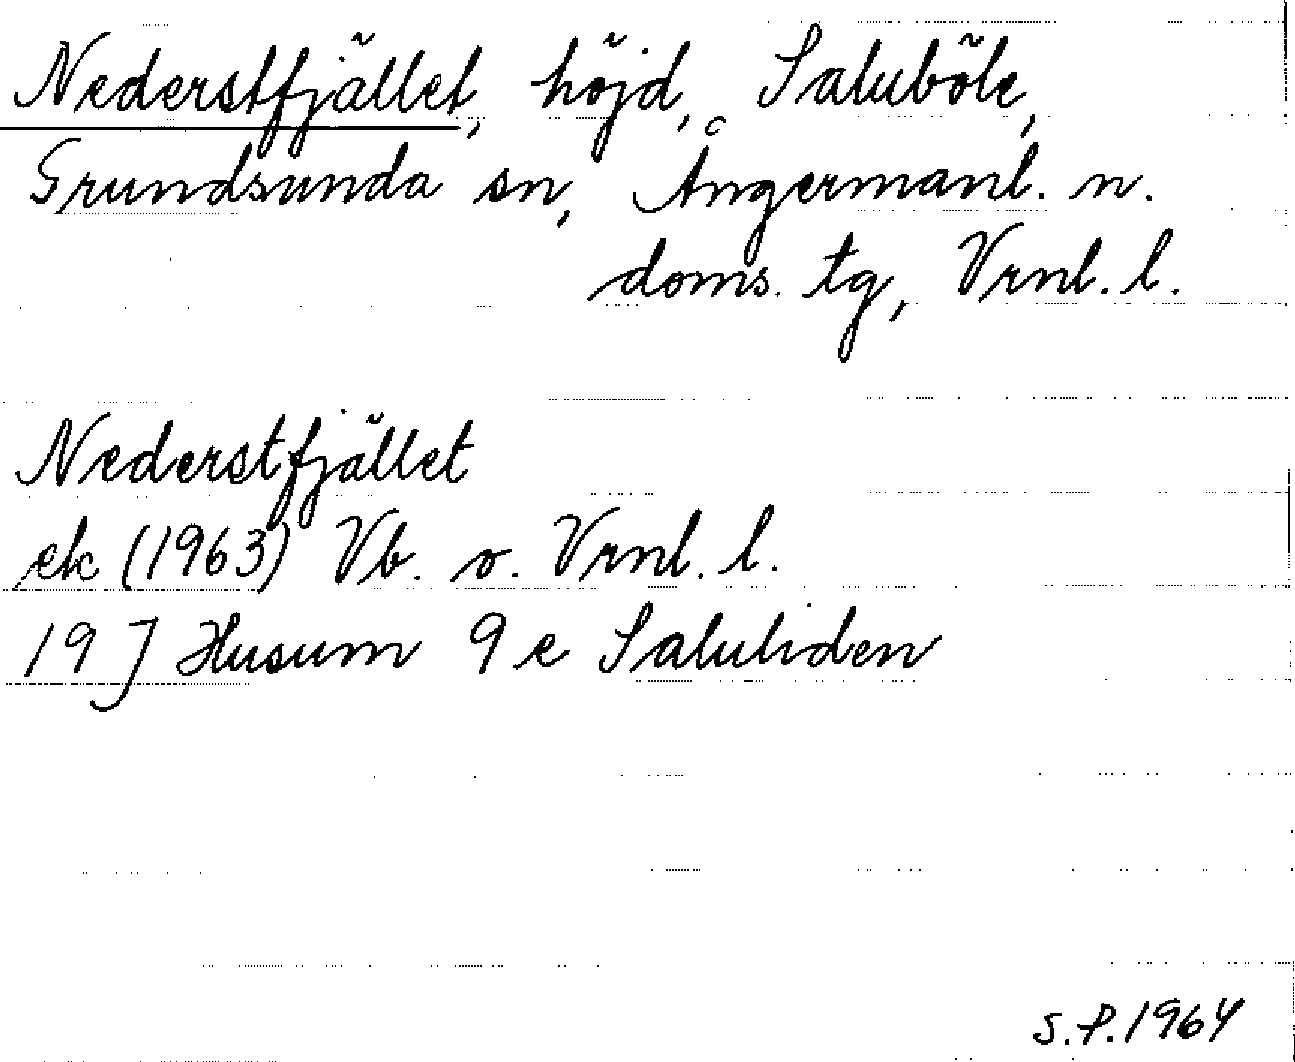 Nederstfjället, höjd, Saluböle,
Grundsunda sn, Ångermanl. n.
doms. tg, Vrnl. l.
Nederstfjället
ek (1963) Vb. o. Vrnl. l.
19 J Husum 9 e Saluliden
S.P. 1964